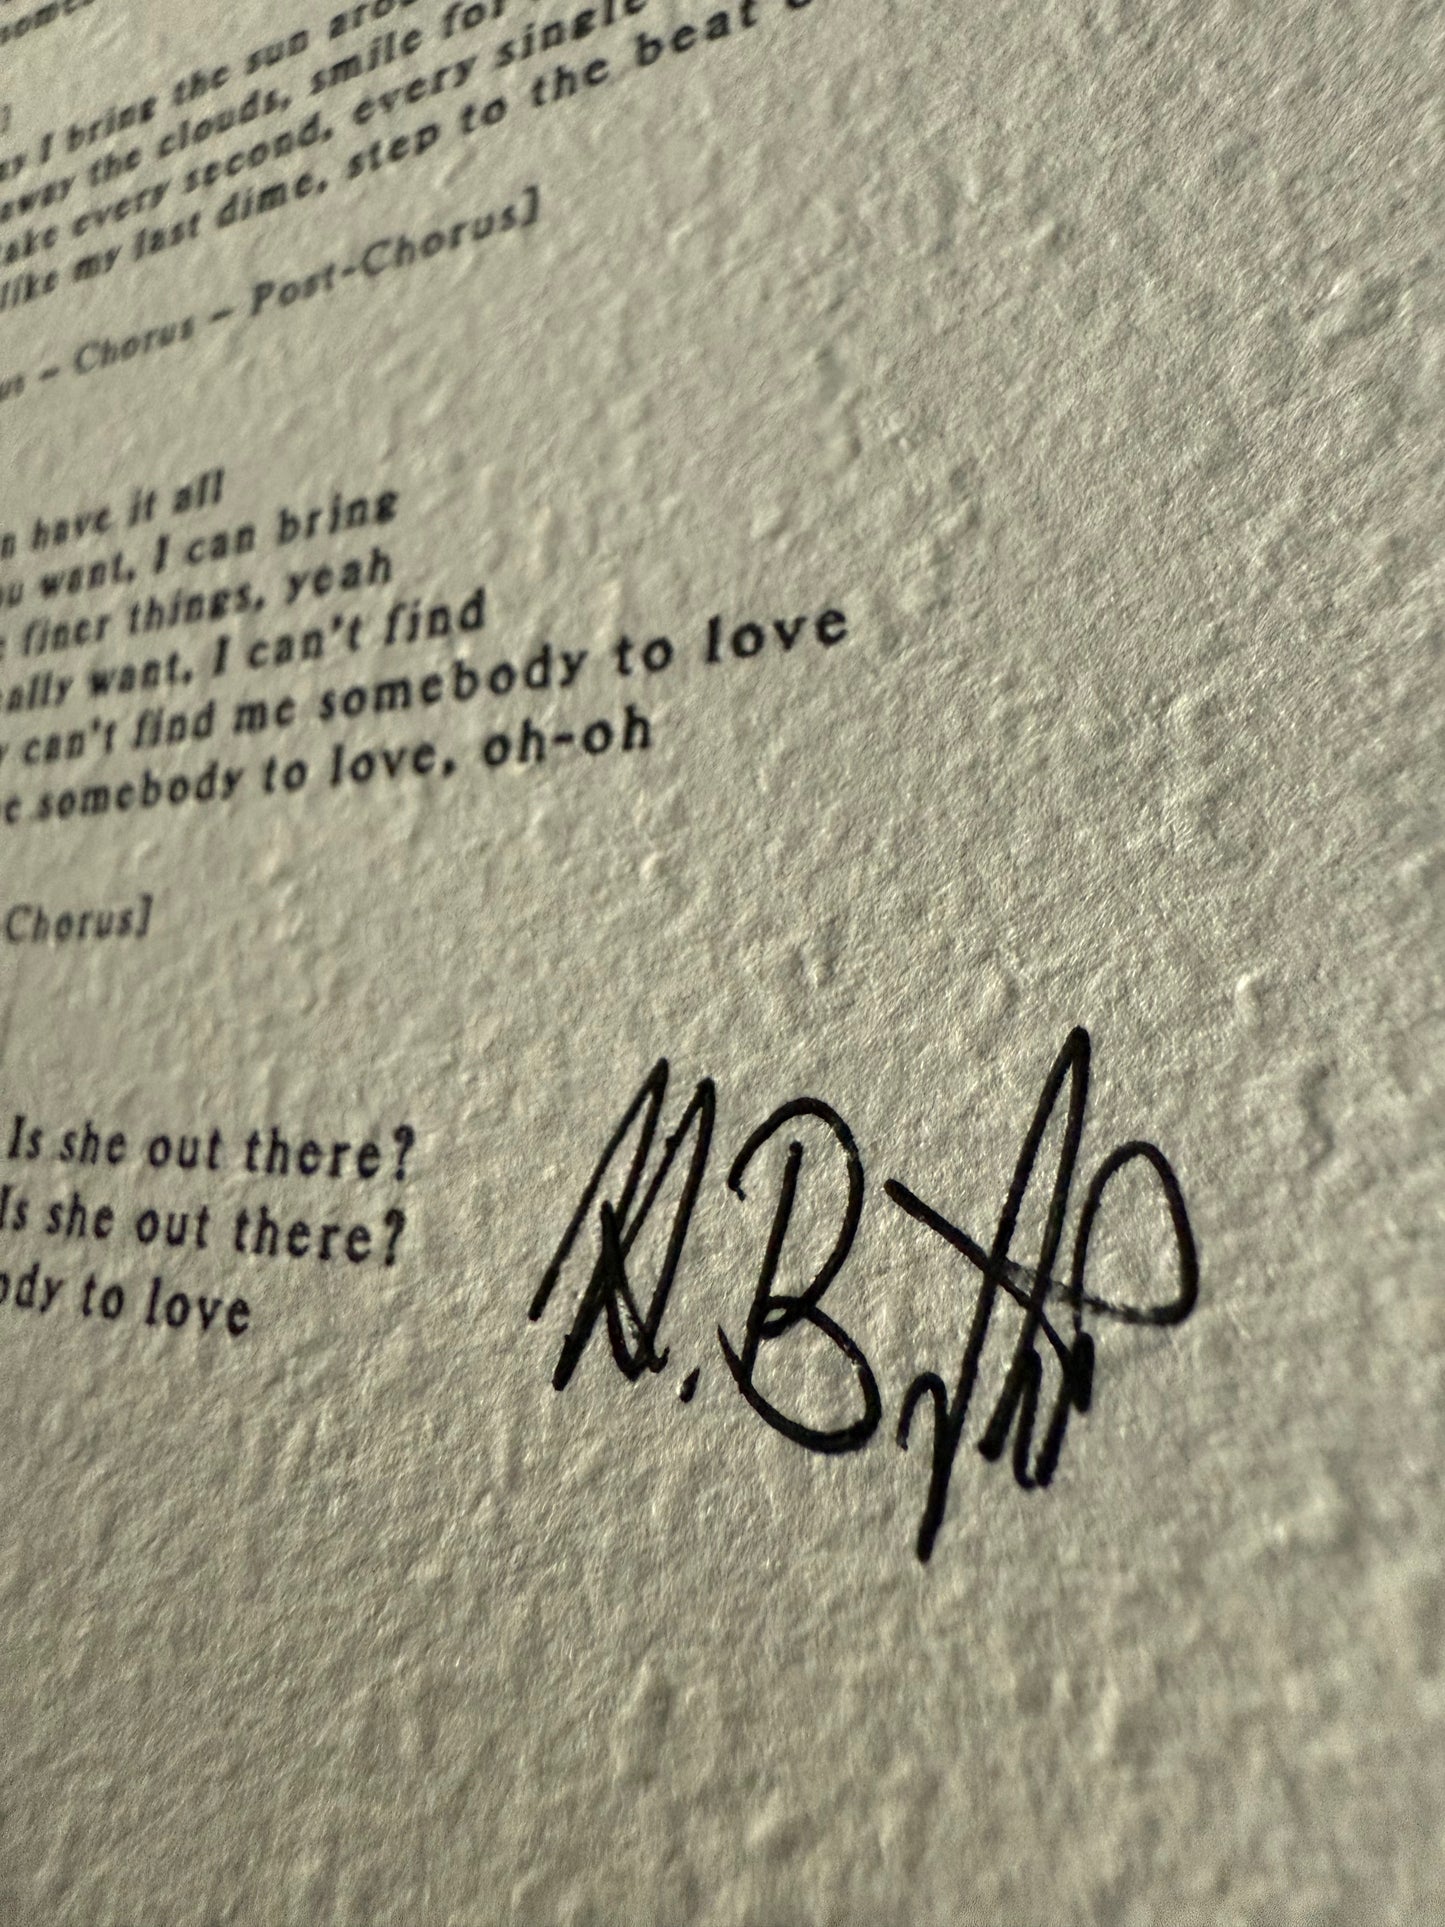 I bring the sun
away the clouds, smile for
every second, every single
like my last dime, step to the beat
- Chorus - Post-Chorus]
have it all
want, I can bring
finer things, yeah
want, I can't find
can't find me somebody to love
somebody to love, oh-oh
Chorus]
Is she out there?
Is she out there?
to love